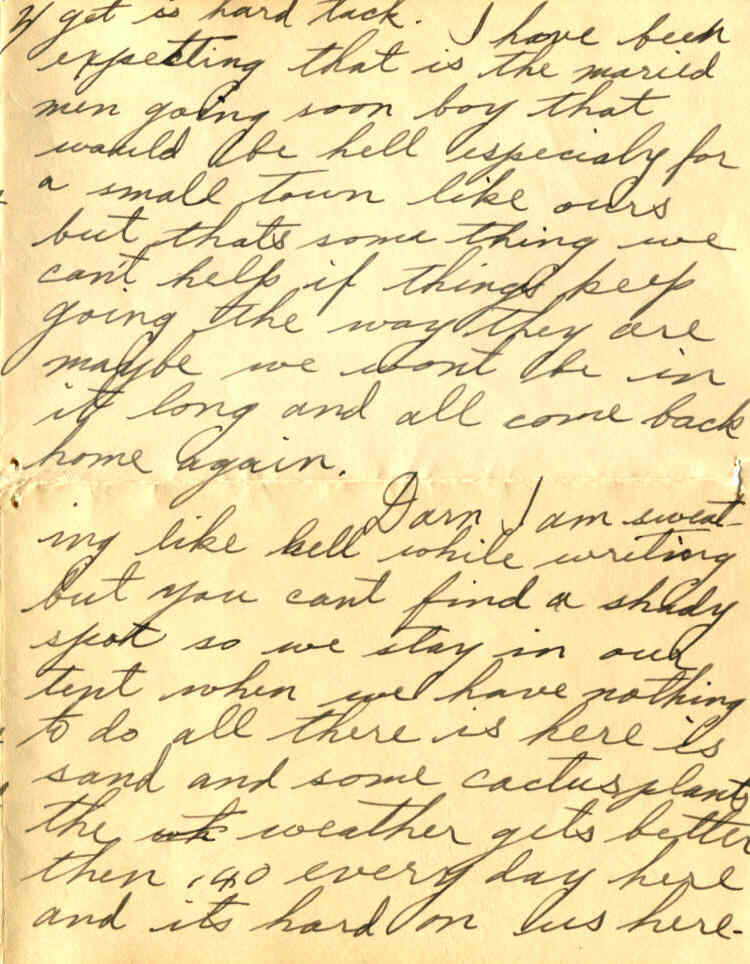 2/ get is hard tack. I have been
expecting that is the maried
men going soon boy that
would be hell especialy for
a small town like ours
but thats some thing we
cant help if things keep
going the way they are
maybe we wont be in
it long and all come back
home again.
Darn I am sweat-
ing like hell while writing
but you cant find a shady
spot so we stay in our
tent when we have nothing
to do all there is here is
sand and some cactus plants
the weather gets better
then 140 every day here
and its hard on us here-